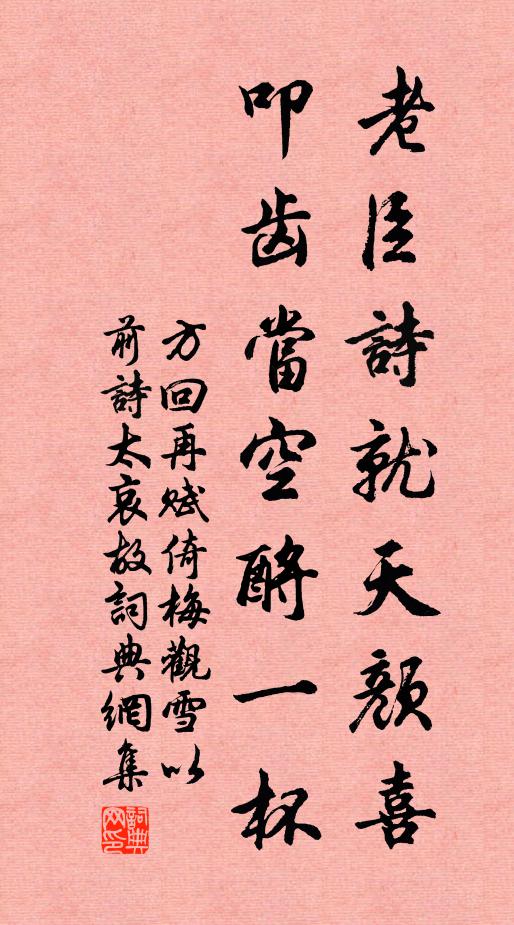 老臣詩就天顏喜
叩齒當空酹一杯
方回再賦倚梅觀雪以
前詩太哀故詞典網集
詞典网印